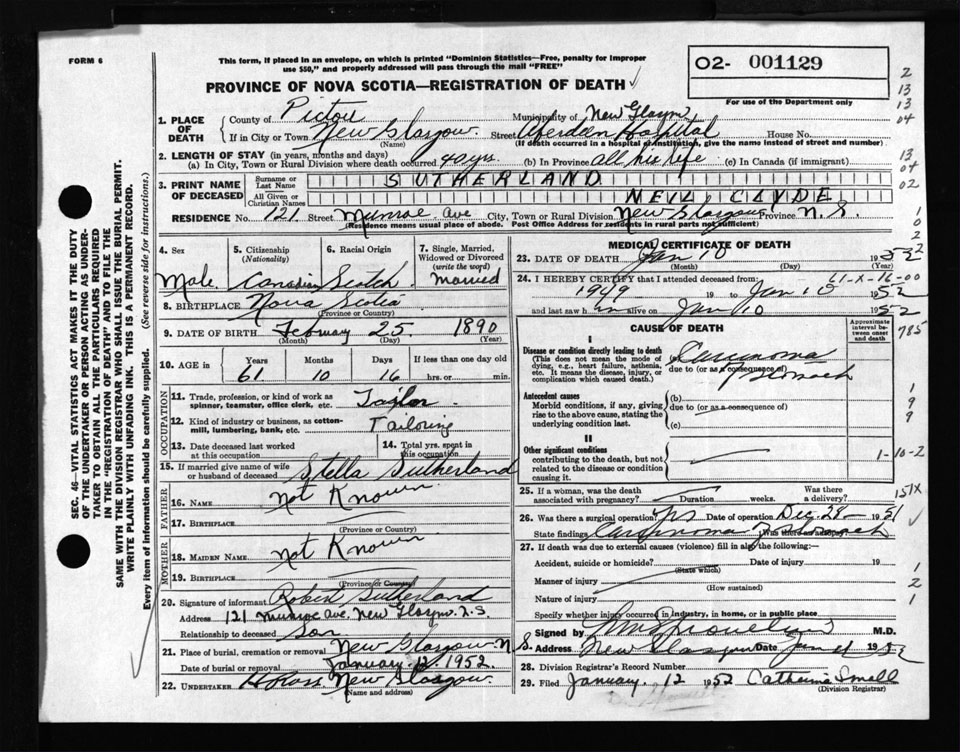 FORM 6
This form, if placed in an envelope, on which is printed "Dominion Statistics—Free, penalty for improper
use $50," and properly addressed will pass through the mail "FREE"
02- 001129
PROVINCE OF NOVA SCOTIA—REGISTRATION OF DEATH
For use of the Department only
1. PLACE OF DEATH
County of Pictou Municipality of New Glasgow
If in City or Town New Glasgow. Street Aberdeen Hospital House No.
(Name) (If death occurred in a hospital or institution, give name instead of street and number)
2. LENGTH OF STAY (in years, months and days)
(a) In City, Town or Rural Division where death occurred 40 yrs. (b) In Province all his life (c) In Canada (if immigrant)
3. PRINT NAME OF DECEASED
Surname or Last Name SUTHERLAND
All Given or Christian Names NEIL CLYDE
RESIDENCE No. 121 Street Munroe Ave City, Town or Rural Division New Glasgow Province N.S.
(Residence means usual place of abode. Post Office Address for residents in rural parts not sufficient)
4. Sex
Male
5. Citizenship
(Nationality)
Canadian
6. Racial Origin
Scotch
7. Single, Married, Widowed or Divorced
(write the word)
Married
8. BIRTHPLACE Nova Scotia
(Province or Country)
9. DATE OF BIRTH February 25 1890
(Month) (Day) (Year)
10. AGE in Years Months Days If less than one day old
61 10 16 hrs. or min.
OCCUPATION
11. Trade, profession, or kind of work as
spinner, teamster, office clerk, etc. Taylor
12. Kind of industry or business, as cotton-
mill, lumbering, bank, etc. Tailoring
13. Date deceased last worked
at this occupation
14. Total yrs. spent in
this occupation
15. If married give name of wife
or husband of deceased Stella Sutherland
FATHER
16. NAME Not Known
17. BIRTHPLACE
(Province or Country)
MOTHER
18. MAIDEN NAME Not Known
19. BIRTHPLACE
(Province or Country)
20. Signature of informant Robert Sutherland
Address 121 Munroe Ave. New Glasgow. N.S.
Relationship to deceased Son
21. Place of burial, cremation or removal New Glasgow. N.S.
Date of burial or removal January 12 1952.
22. UNDERTAKER H Ross New Glasgow.
(Name and address)
MEDICAL CERTIFICATE OF DEATH
23. DATE OF DEATH Jan 10 1952
(Month) (Day) (Year)
24. I HEREBY CERTIFY that I attended deceased from: 61-X-16-00
1949 19 to Jan 10 1952
and last saw him alive on Jan 10 1952
CAUSE OF DEATH
Approximate interval between onset and death
785
I
Disease or condition directly leading to death
(This does not mean the mode of
dying, e.g., heart failure, asthenia,
etc. It means the disease, injury, or
complication which caused death.)
Carcinoma
due to (or as a consequence of)
of Stomach
Antecedent causes
Morbid conditions, if any, giving
rise to the above cause, stating the
underlying condition last.
(b)
due to (or as a consequence of)
(c)
II
Other significant conditions
contributing to the death, but not
related to the disease or condition
causing it.
1-10-2
25. If a woman, was the death
associated with pregnancy? Duration weeks. Was there a delivery?
151X
26. Was there a surgical operation? Yes Date of operation Dec. 28 1951
State findings Carcinoma of Stomach Was there an autopsy?
27. If death was due to external causes (violence) fill in also the following:
Accident, suicide or homicide? Date of injury 19
(State which)
Manner of injury
(How sustained)
Nature of injury
Specify whether injury occurred in industry, in home, or in public place
Signed by M.D.
Address New Glasgow Date Jan 11 1952
28. Division Registrar's Record Number
29. Filed January. 12 1952 Catherine Small
(Division Registrar)
SEC. 46—VITAL STATISTICS ACT MAKES IT THE DUTY
OF THE UNDERTAKER OR PERSON ACTING AS UNDER-
TAKER TO OBTAIN ALL THE PARTICULARS REQUIRED
IN THE "REGISTRATION OF DEATH" AND TO FILE THE
SAME WITH THE DIVISION REGISTRAR WHO SHALL ISSUE THE BURIAL PERMIT.
WRITE PLAINLY WITH UNFADING INK. THIS IS A PERMANENT RECORD.
Every item of information should be carefully supplied. (See reverse side for instructions.)
2
13
13
04
13
04
02
1
0
2
2
1
9
9
1
2
1